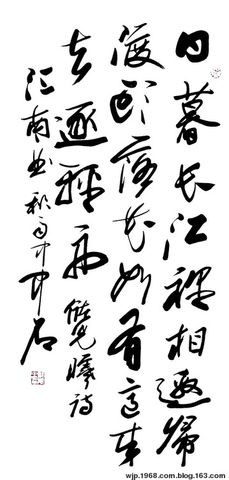 日暮长江裡相邀歸
渡头落花如有意来
去逐轻舟 儲光羲诗
江南曲 中石
wjp.1968.com.blog.163.com